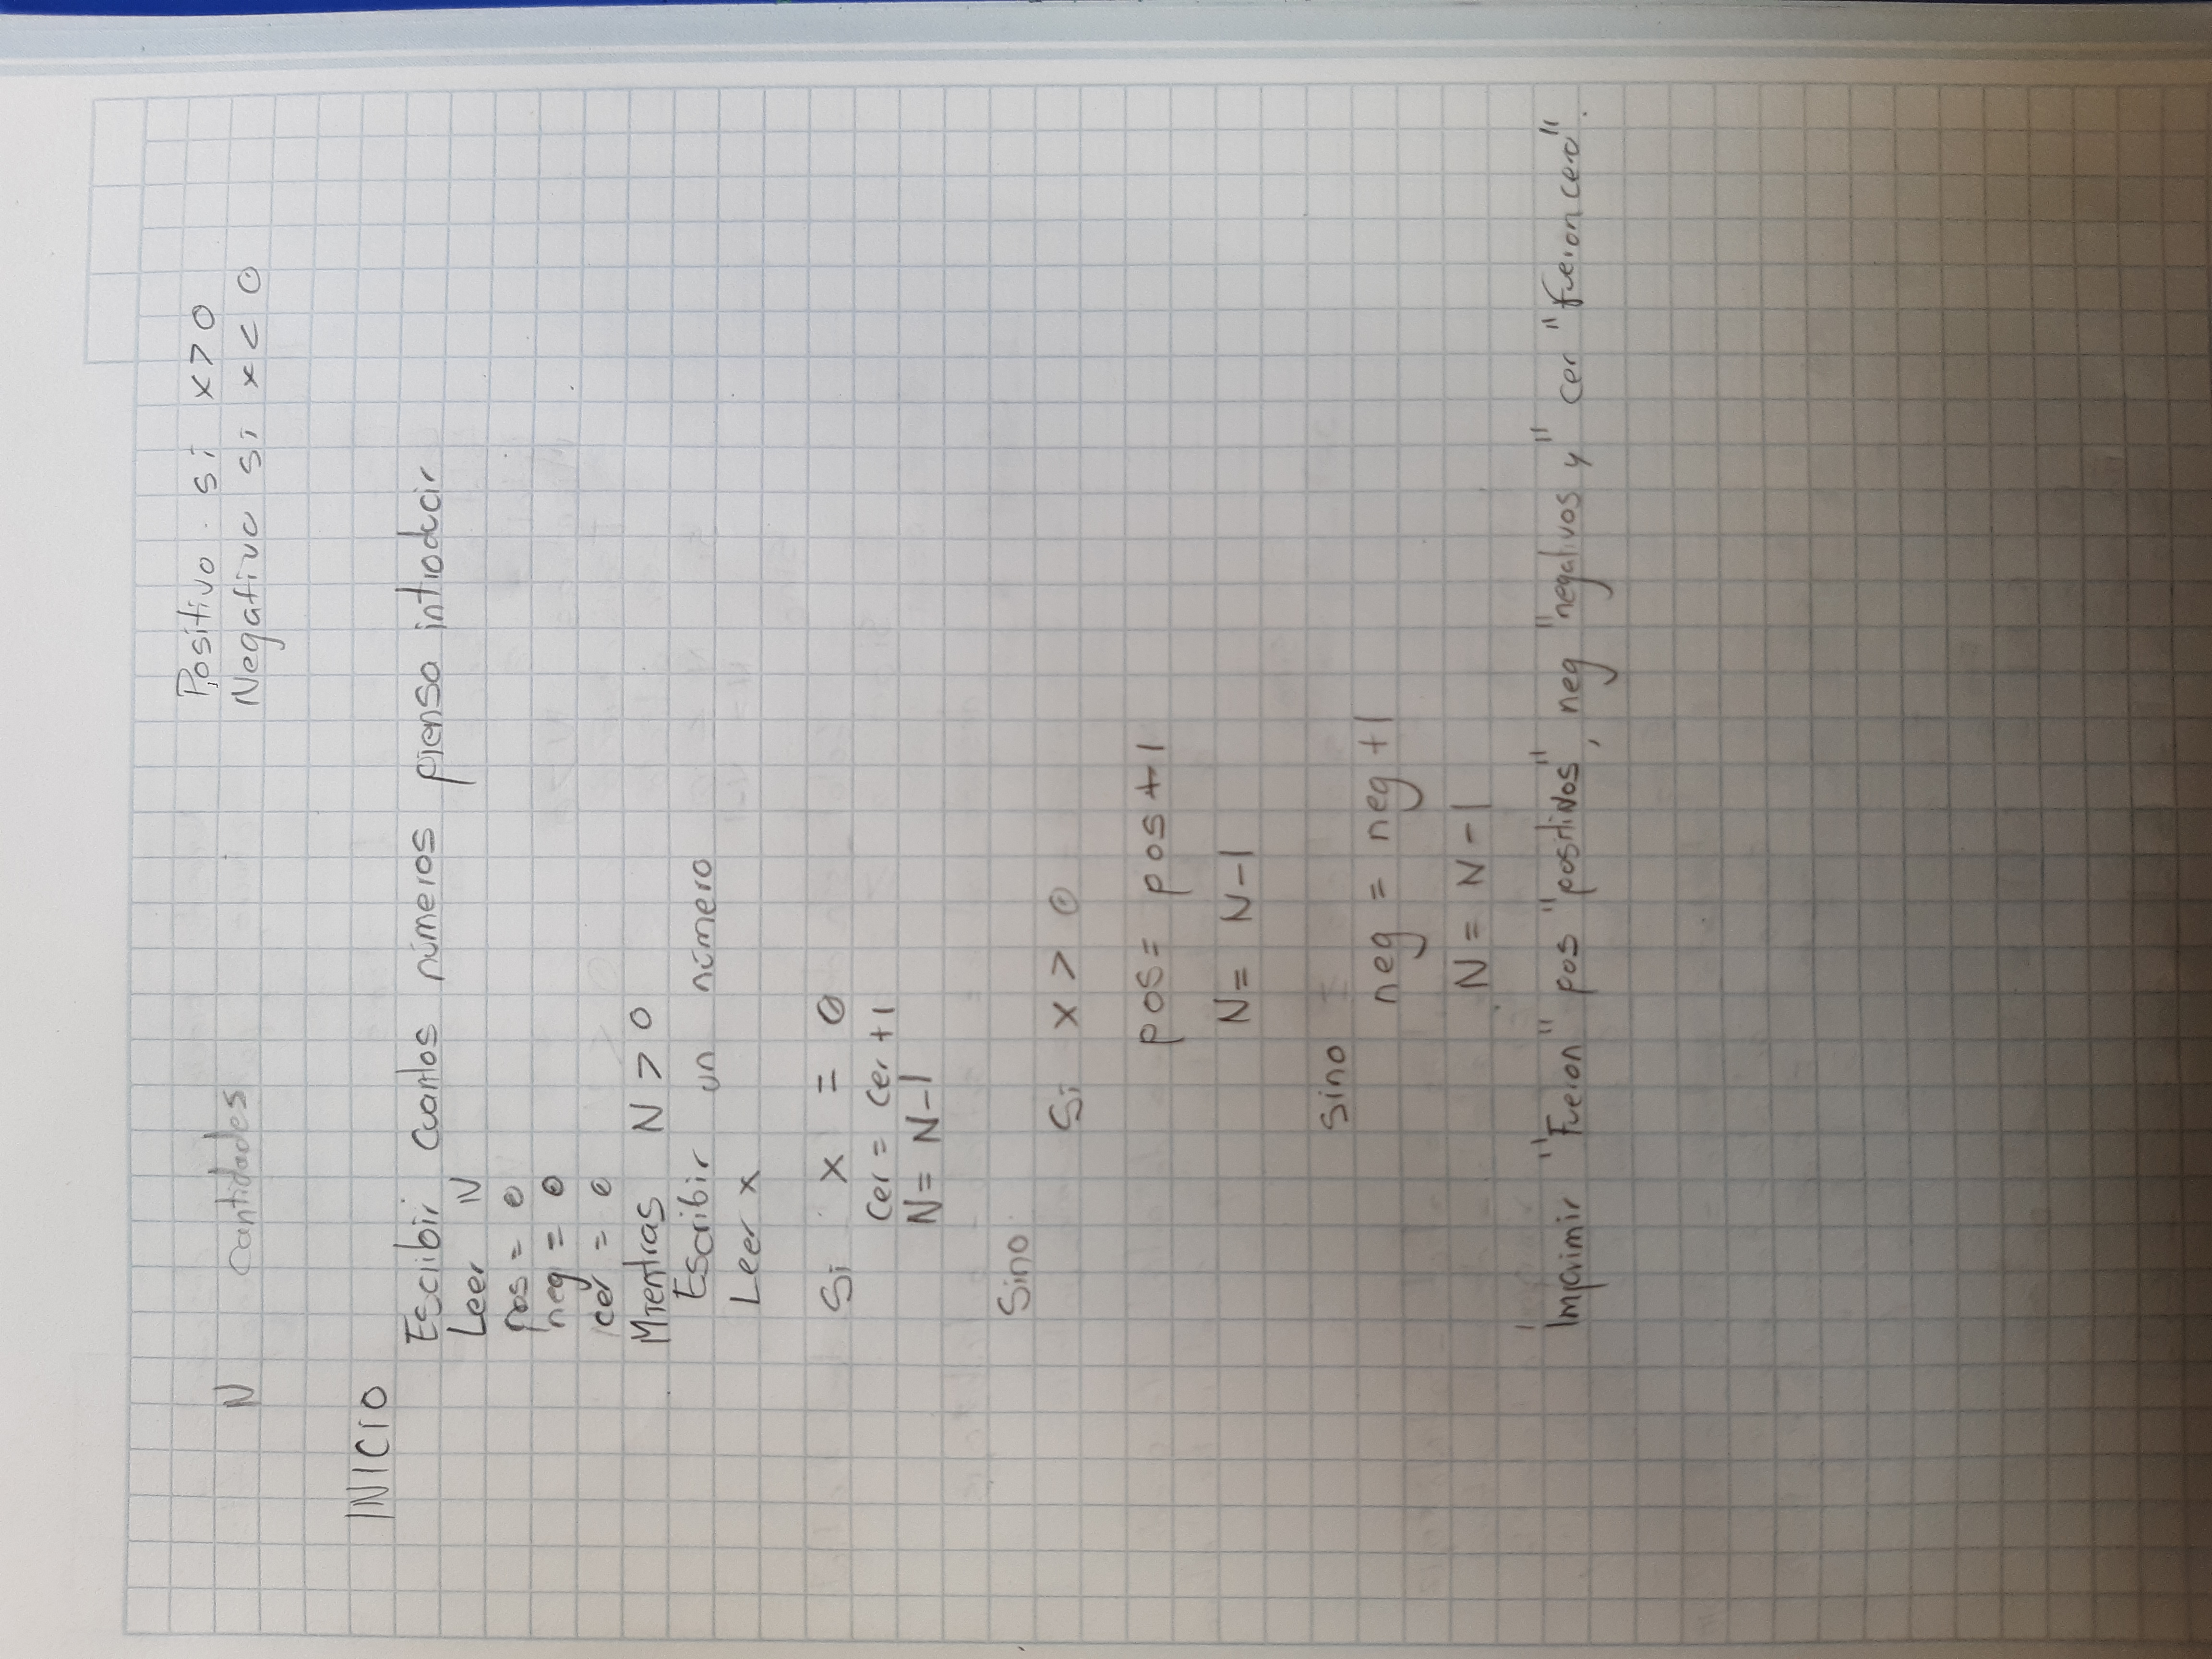 N cantidades
Positivo si x > 0
Negativo si x < 0
INICIO
Escribir cuantos números piensa introducir
Leer N
pos = 0
neg = 0
cer = 0
Mientras N > 0
Escribir un número
Leer x
Si x = 0
cer = cer + 1
N = N - 1
Sino
Si x > 0
pos = pos + 1
N = N - 1
sino
neg = neg + 1
N = N - 1
Imprimir "Fueron" pos "positivos", neg "negativos y" cer "fueron cero".